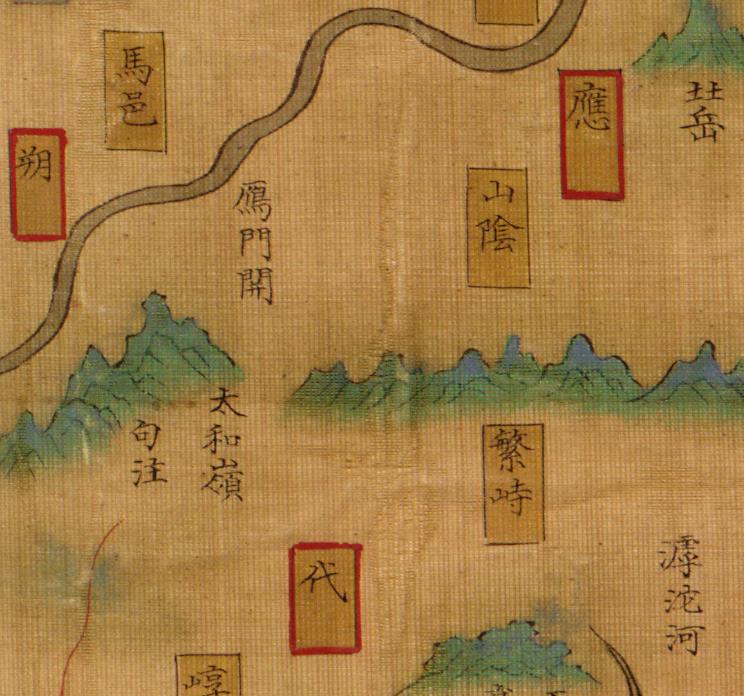 馬邑
應
𡊨岳
朔
山陰
鴈門開
太和嶺
句注
繁峙
滹沱河
代
崞